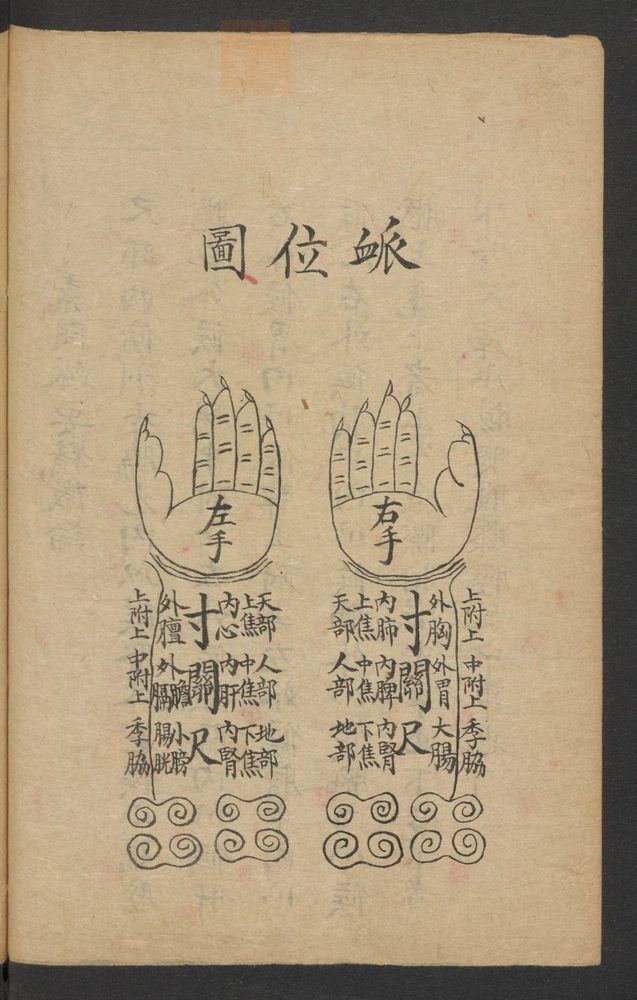 衇位圖
右手
上附上 中附上 季脇
外胸 外胃 大腸
寸關尺
內肺 內脾 內腎
上焦 中焦 下焦
天部 人部 地部
左手
天部 人部 地部
上焦 中焦 下焦
內心 內肝 內腎
寸關尺
外膻 外膽膈 小膀腸胱
上附上 中附上 季脇